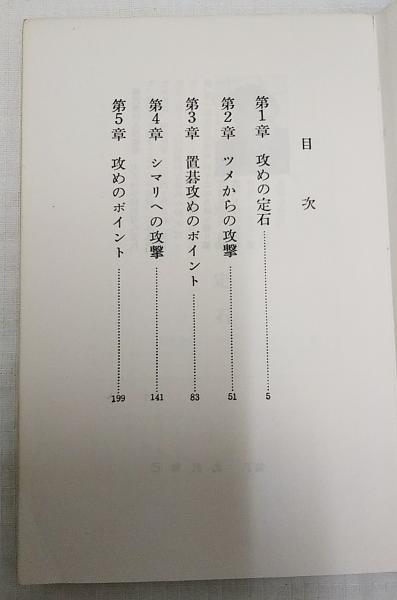 目次
第1章 攻めの定石……………5
第2章 ツメからの攻撃……………51
第3章 置碁攻めのポイント……………83
第4章 シマリへの攻撃……………141
第5章 攻めのポイント……………199